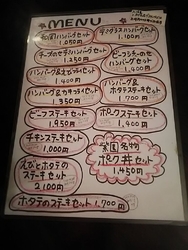 MENU
和風ハンバーグセット
1,050円
チーズのせハンバーグセット
1,250円
ハンバーグ&エビフライセット
1,400円
ハンバーグ&カキフライセット
1,350円
ビーフステーキセット
1,950円
チキンステーキセット
1,000円
えびとホタテの
ステーキセット
2,100円
ホタテのステーキセット 1,700円
ハンバーグセット
1,100円
セット
1,400円
ハンバーグ&
ホタテステーキセット
1,700円
ポークステーキセット
1,400円
名物
ポーク丼セット
1,450円